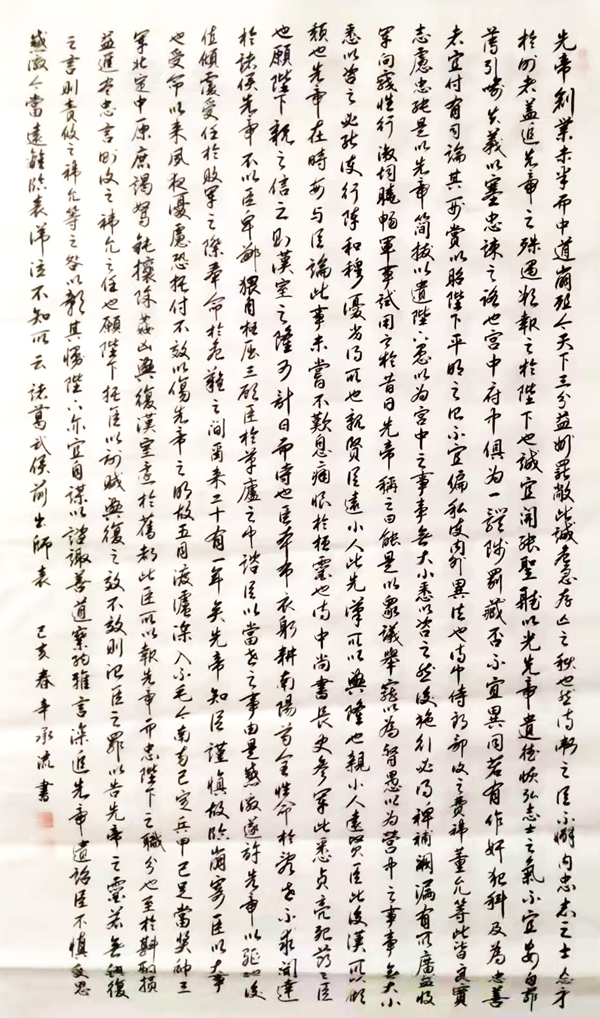 先帝創業未半而中道崩殂今天下三分益州罷敝此誠危急存亡之秋也然侍衛之臣不懈内忠志之士亡身
於外者蓋追先帝之殊遇欲報之於陛下也誠宜開張聖聽以光先帝遺德恢弘志士之氣不宜妄自菲
薄引喻失義以塞忠諫之路也宮中府中俱為一體陟罰臧否不宜異同若有作奸犯科及為忠善
者宜付有司論其刑賞以昭陛下平明之治不宜偏私使内外異法也侍中侍郎郭攸之費禕董允等此皆良實
志慮忠純是以先帝簡拔以遺陛下愚以為宮中之事事無大小悉以咨之然後施行必得裨補闕漏有所廣益將
軍向寵性行淑均曉暢軍事試用之於昔日先帝稱之曰能是以眾議舉寵以為督愚以為營中之事事無大小
悉以咨之必能使行陣和穆優劣得所也親賢臣遠小人此先漢所以興隆也親小人遠賢臣此後漢所以傾
頹也先帝在時每与臣論此事未嘗不歎息痛恨於桓靈也侍中尚書長史參軍此悉貞亮死節之臣
也願陛下親之信之則漢室之隆可計日而待也臣本布衣躬耕南陽苟全性命於亂世不求聞達
於諸侯先帝不以臣卑鄙猥自枉屈三顧臣於草廬之中諮臣以當世之事由是感激遂許先帝以驅馳後
值傾覆受任於敗軍之際奉命於危難之間爾來二十有一年矣先帝知臣謹慎故臨崩寄臣以大事
也受命以來夙夜憂慮恐托付不效以傷先帝之明故五月渡瀘深入不毛今南方已定兵甲已足當獎帥三
軍北定中原庶竭駑鈍攘除姦凶興復漢室還於舊都此臣所以報先帝而忠陛下之職分也至於斟酌損
益進盡忠言則攸之禕允之任也願陛下托臣以討賊興復之效不效則治臣之罪以告先帝之靈若無興復
之言則責攸之禕允等之咎以彰其慢陛下亦宜自謀以諮諏善道察納雅言深追先帝遺詔臣不勝受恩
感激今當遠離臨表涕泣不知所云諸葛武侯前出師表 己亥春辛承流書